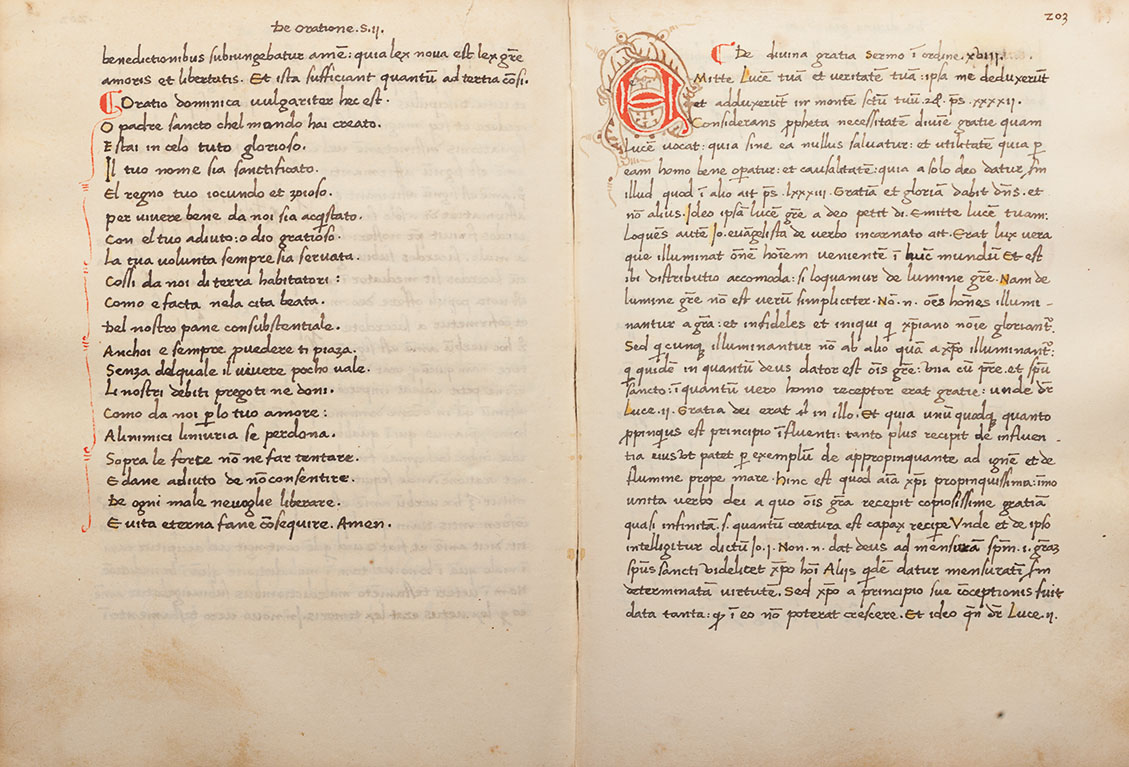 De oratione. S. ij.
benedictionibus subiungebatur amē: quia lex nova est lex gr̄e
amoris et libertatis. Et ista sufficiant quantū ad tertia cōsi.
Oratio dominica vulgariter hec est.
O padre sancto chel mondo hai creato.
Estai in celo tuto glorioso.
Il tuo nome sia sanctificato.
El regno tuo iocundo et zoioso.
per vivere bene da noi sia acqstato.
Con el tuo adiuto: o dio gratioso.
La tua volunta sempre sia servata.
Cossi da noi di terra habitatori:
Como e facta nela cita beata.
Del nostro pane consubstentiale.
Anchoi e sempre puedere ti piaza.
Senza delquale il vivere pocho vale.
Li nostri debiti pregoti ne doni.
Como da noi plo tuo amore:
Alinimici liniuria se perdona.
Sopra le forte nō ne far tentare.
E dane adiuto de nō consentire.
De ogni male nevoglie liberare.
E vita eterna fane cōsequire. Amen.
203
De divina gratia Sermo ī ordine. xviii.
Emitte Lucē tuā et veritatē tuā: ipsa me deduxerūt
et adduxerūt in montē sctū tuū. ps. xxxxii.
Considerans ppheta necessitatē divine gratie quam
Lucē vocat: quia sine ea nullus salvatur: et utilitatē quia p
eam homo bene opatur: et causalitatē: quia a solo deo datur
illud quod ī alio ait ps. lxxxiii. Gratiā et gloriā dabit dn̄s. et
nō alius. Ideo ipsā lucē gr̄e a deo petit di. Emitte lucē tuam:
Loquēs autē Jo. evāgelista de verbo incarnato ait. Erat lux vera
que illuminat ōnē hoīem venientē ī huc mundū. Et est
ibi distributio accomoda: si loquamur de lumine gr̄e. Nam de
lumine gr̄e nō est verū simpliciter. Nō. n. oēs hoīes illumi-
nantur a gr̄a: et infideles et iniqui q xp̄iano noīe gloriant.
Sed qcunq illuminantur nō ab alio quā a xp̄o illuminant:
q quidē in quantū deus dator est oīs gr̄e: una cū pr̄e. et spū
sancto: ī quantū vero homo receptor erat gratie: unde dr̄
Luce. ii. Gratia dei erat in illo. Et quia unū quodq quanto
ppinqus est principio īfluenti: tanto plus recipit de influen-
tia eius ut patet p exemplū de appropinquante ad ignē et de
flumine prope mare. hinc est quod aīa xp̄i propinquissima: imo
unita verbo dei a quo oīs gr̄a recepit copiosissime gratiā
quasi infinitā. s. quantū creatura est capax recipe. Unde et de ipso
intelligitur dictū Jo. i. Non. n. dat deus ad mensurā spm. i. grāz
spūs sancti videlicet xp̄o hoī. Alijs qdē datur mensuratī
determinatā virtutē. Sed xp̄o a principio sue cōceptionis fuit
data tanta: q ī eo nō poterat crescere. Et ideo qn̄ dr̄ Luce. ii.